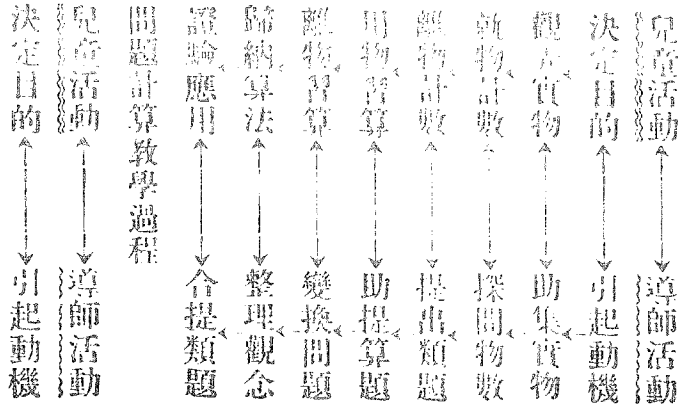 兒童活動 導師活動
決定目的 引起動機
觀察實物 助集實物
執物計數 探問物數
離物計數 提出類題
用物習算 助提算題
離物習算 變換問題
歸納算法 整理觀念
證驗應用 合提類題
問題計算教學過程
兒童活動 導師活動
決定目的 引起動機